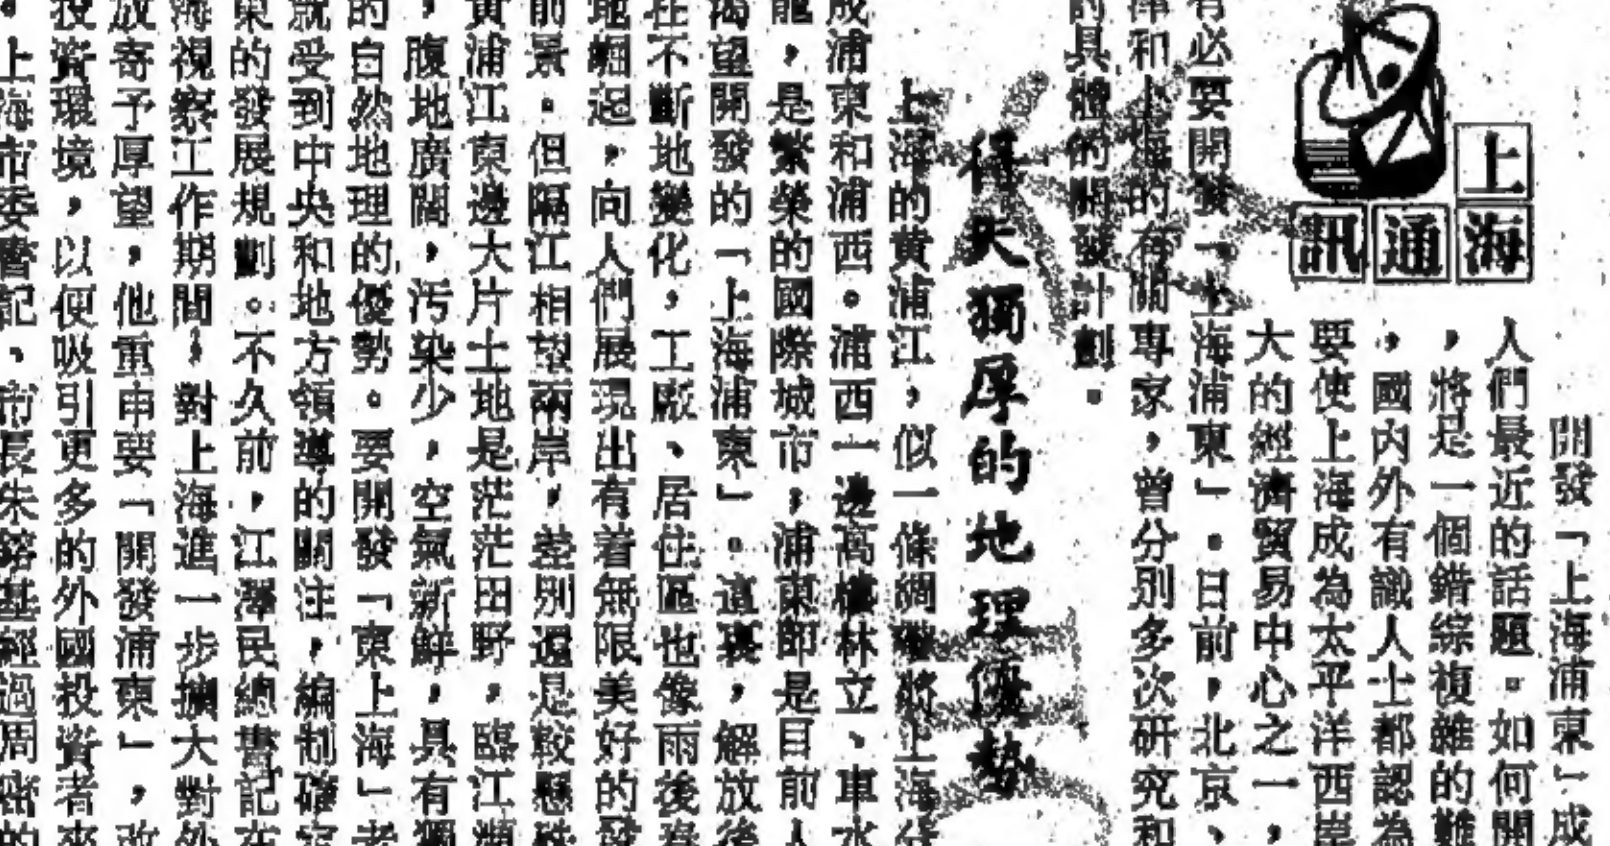 上海
通訊
開發「上海浦東」成
人們最近的話題。如何開
，將是一個錯綜複雜的難
，國內外有識人士都認為
要使上海成為太平洋西岸
大的經濟貿易中心之一，
有必要開發「上海浦東」。日前，北京、
津和上海的有關專家，曾分別多次研究和
的具體的開發計劃。
得天獨厚的地理優勢
上海的黄浦江，似一條綢繼將上海分
成浦東和浦西。浦西一邊高樓林立、車水
龍，是繁榮的國際城市，浦東即是目前人
渴望開發的「上海浦東」。這裏，解放後
在不斷地變化，工廠、居住區也像雨後春
地崛起，向人們展現出有着無限美好的發
前景。但隔江相望兩岸，差別還是較懸殊
黄浦江東邊大片土地是茫茫田野，臨江瀕
，腹地廣闊，污染少，空氣新鮮，具有獨
的自然地理的優勢。要開發「東上海」者
就受到中央和地方領導的關注，編制確定
東的發展規劃。不久前，江澤民總書記在
海視察工作期間，對上海進一步擴大對外
放寄予厚望，他重申要「開發浦東」，改
投資環境，以便吸引更多的外國投資者來
。上海市委書記、市長朱鎔基經過周密的